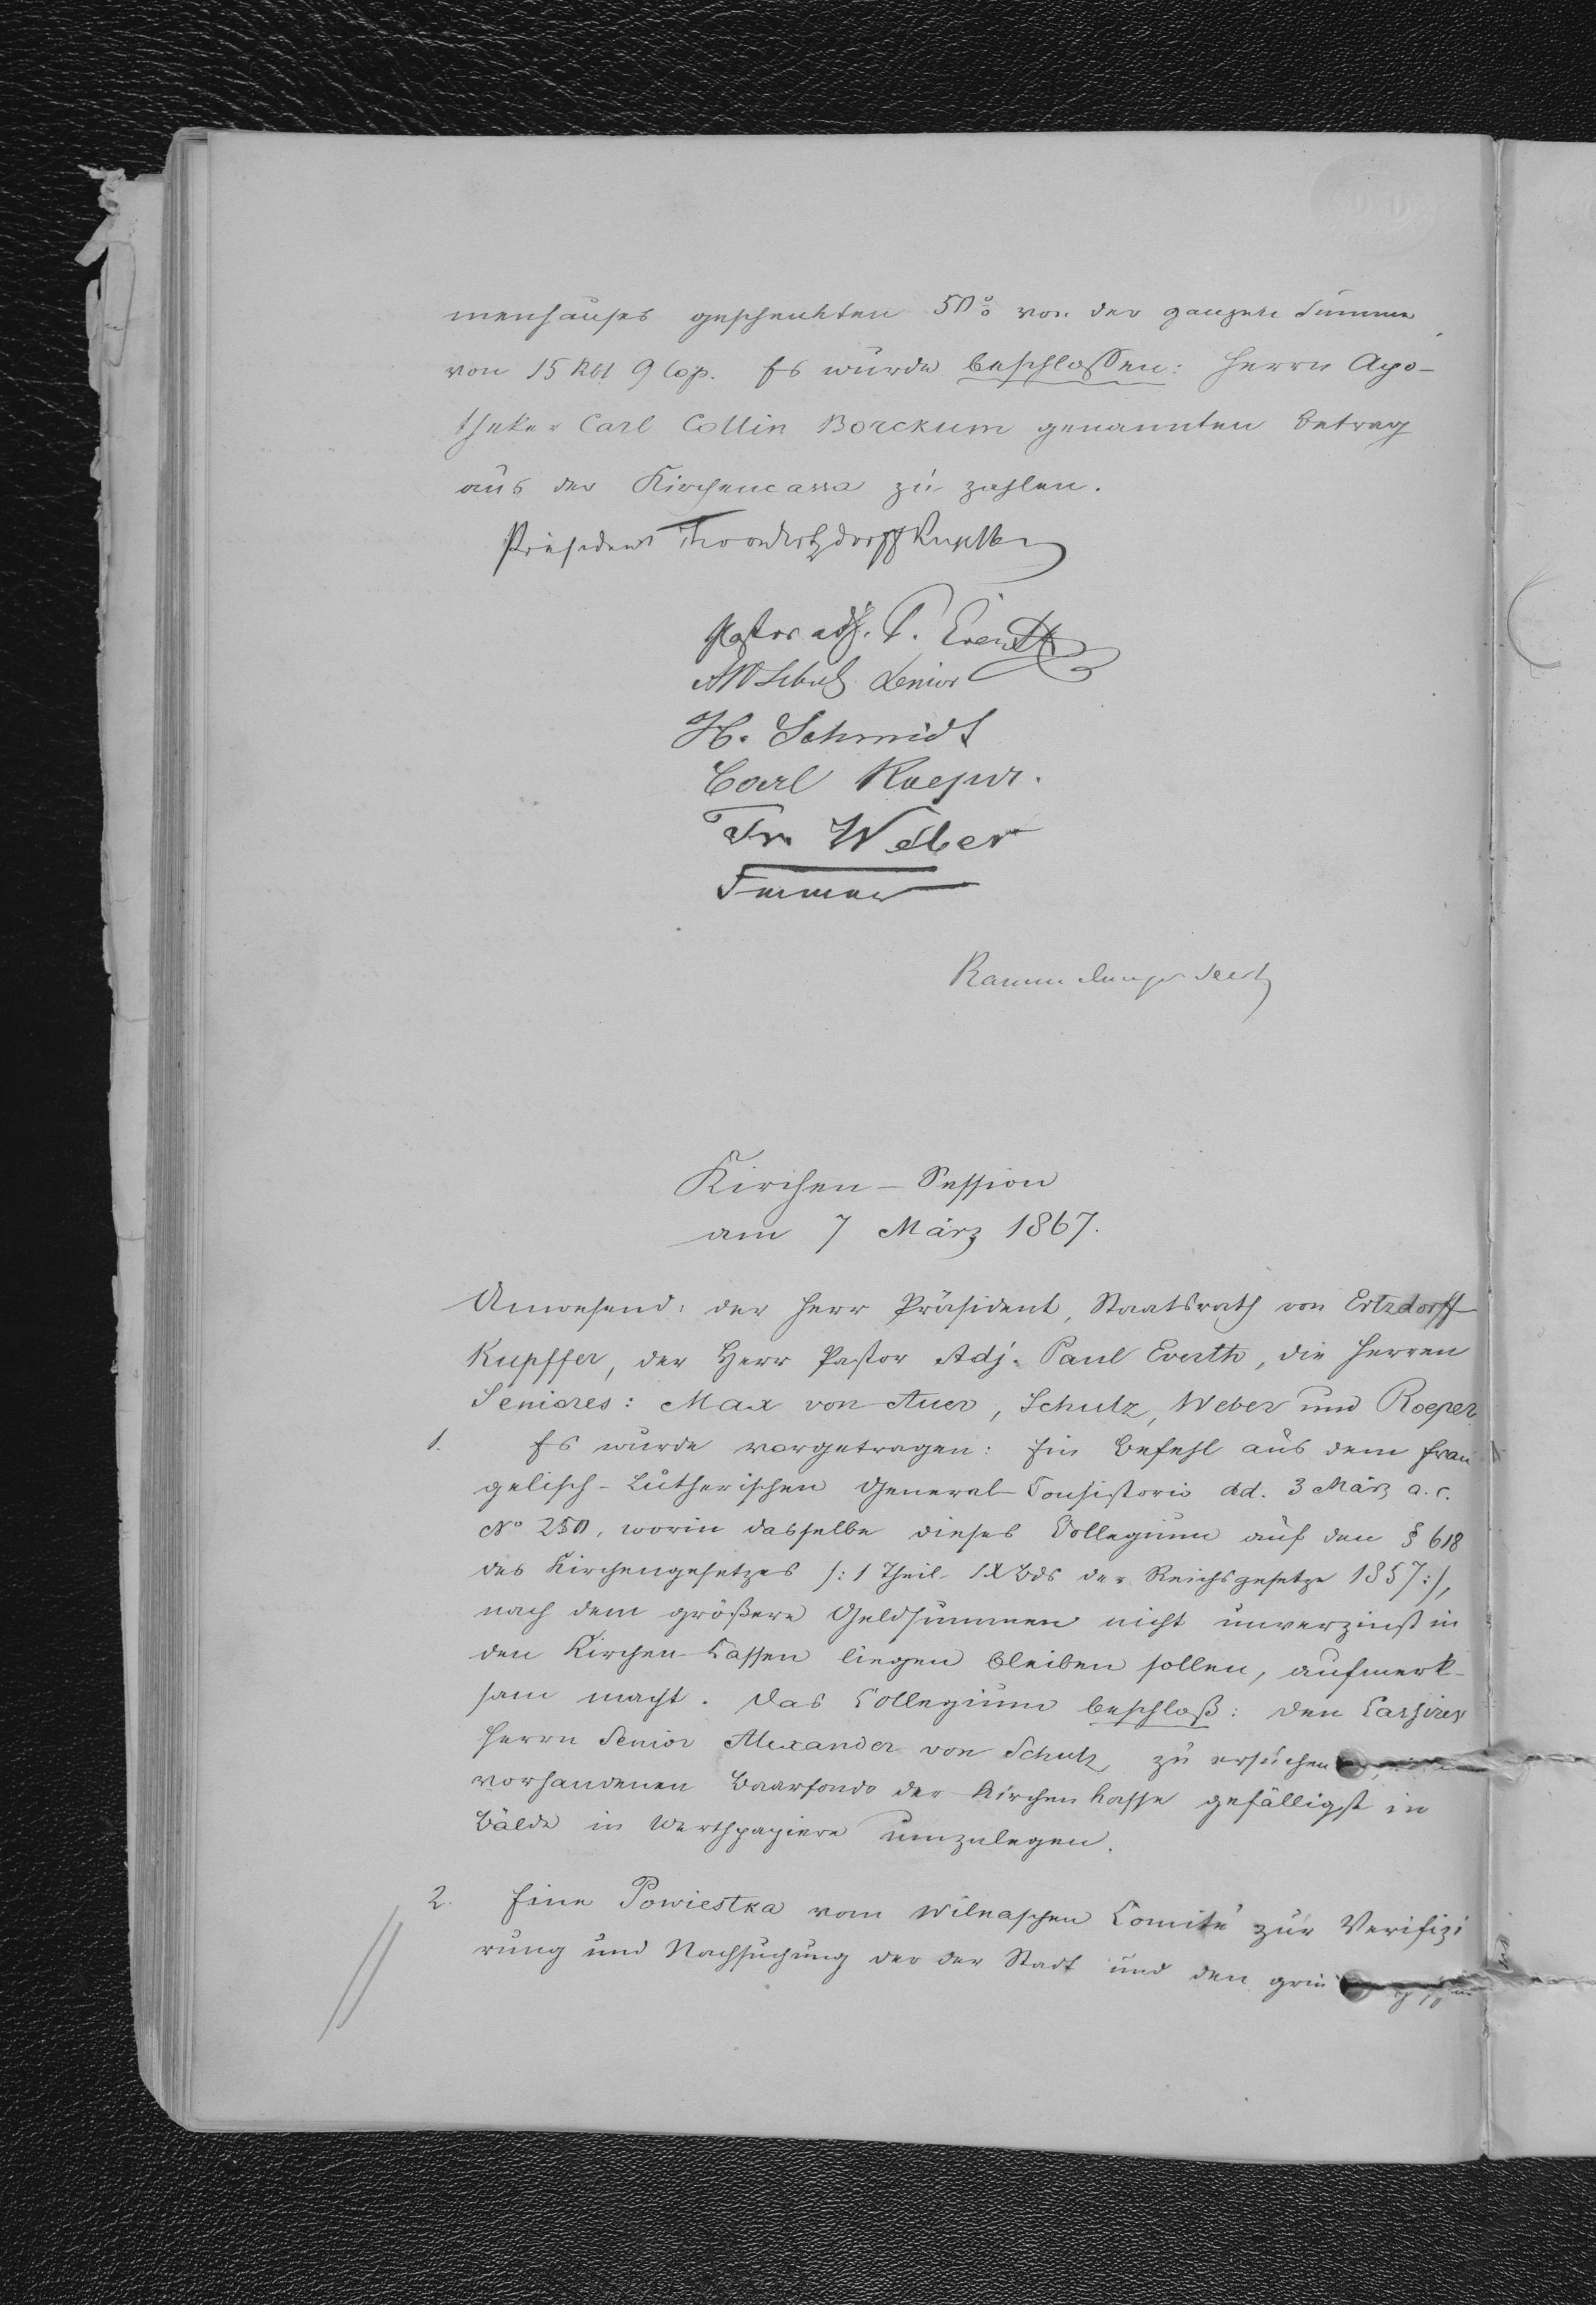 menhauses geschenkten 50% von der ganzen Summe
von 15 Rbl 9 Cop. Es wurde beschlossen: Herrn Apo-
theker Carl Collin Borckum genannten Betrag
aus der Kirchencassa zu zahlen.
Präsident Th von Ertzdorff Kupffer
Pastor adj. P. Everth
Schulz Senior
H. Schmidt
Carl Roeper.
Fr. Weber
Kirchen-Session
am 7 März 1867.
Anwesend: der Herr Präsident, Staatsrath von Ertzdorff
Kupffer, der Herr Pastor Adj. Paul Everth, die Herren
Seniores: Max von Auer, Schulz, Weber und Roeper
1. Es wurde vorgetragen: Ein Befehl aus dem Evan
gelisch-Lutherischen General-Consistorio dd. 3 März a. c.
No 250, worin dasselbe dieses Collegium auf den § 618
des Kirchengesetzes /: 1 Theil IX Bds der Reichsgesetze 1857 :/,
nach dem größere Geldsummen nicht unverzinst in
den Kirchen-Cassen liegen bleiben sollen, aufmerk-
sam macht. Das Collegium beschloß: den Cassirer
Herrn Senior Alexander von Schulz zu ersuchen
vorhandenen Baarfonds der Kirchen Kasse gefälligst in
Bälde in Werthpapiere umzulegen.
2. Eine Powiestka vom Wilnaschen Comité zur Verifizi
rung und Nachsuchung der der Stadt und den